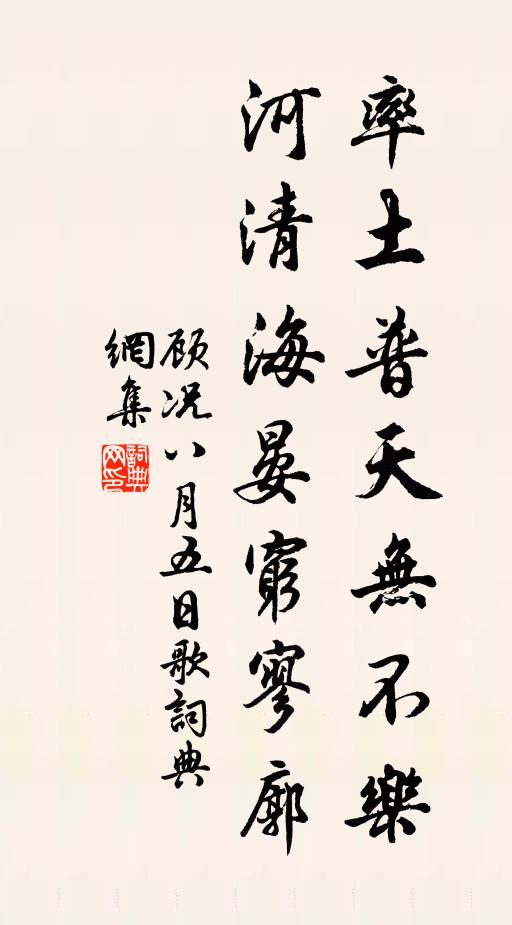 率土普天無不樂
河清海晏窮寥廓
顾况八月五日歌詞典
網集
詞典
网印